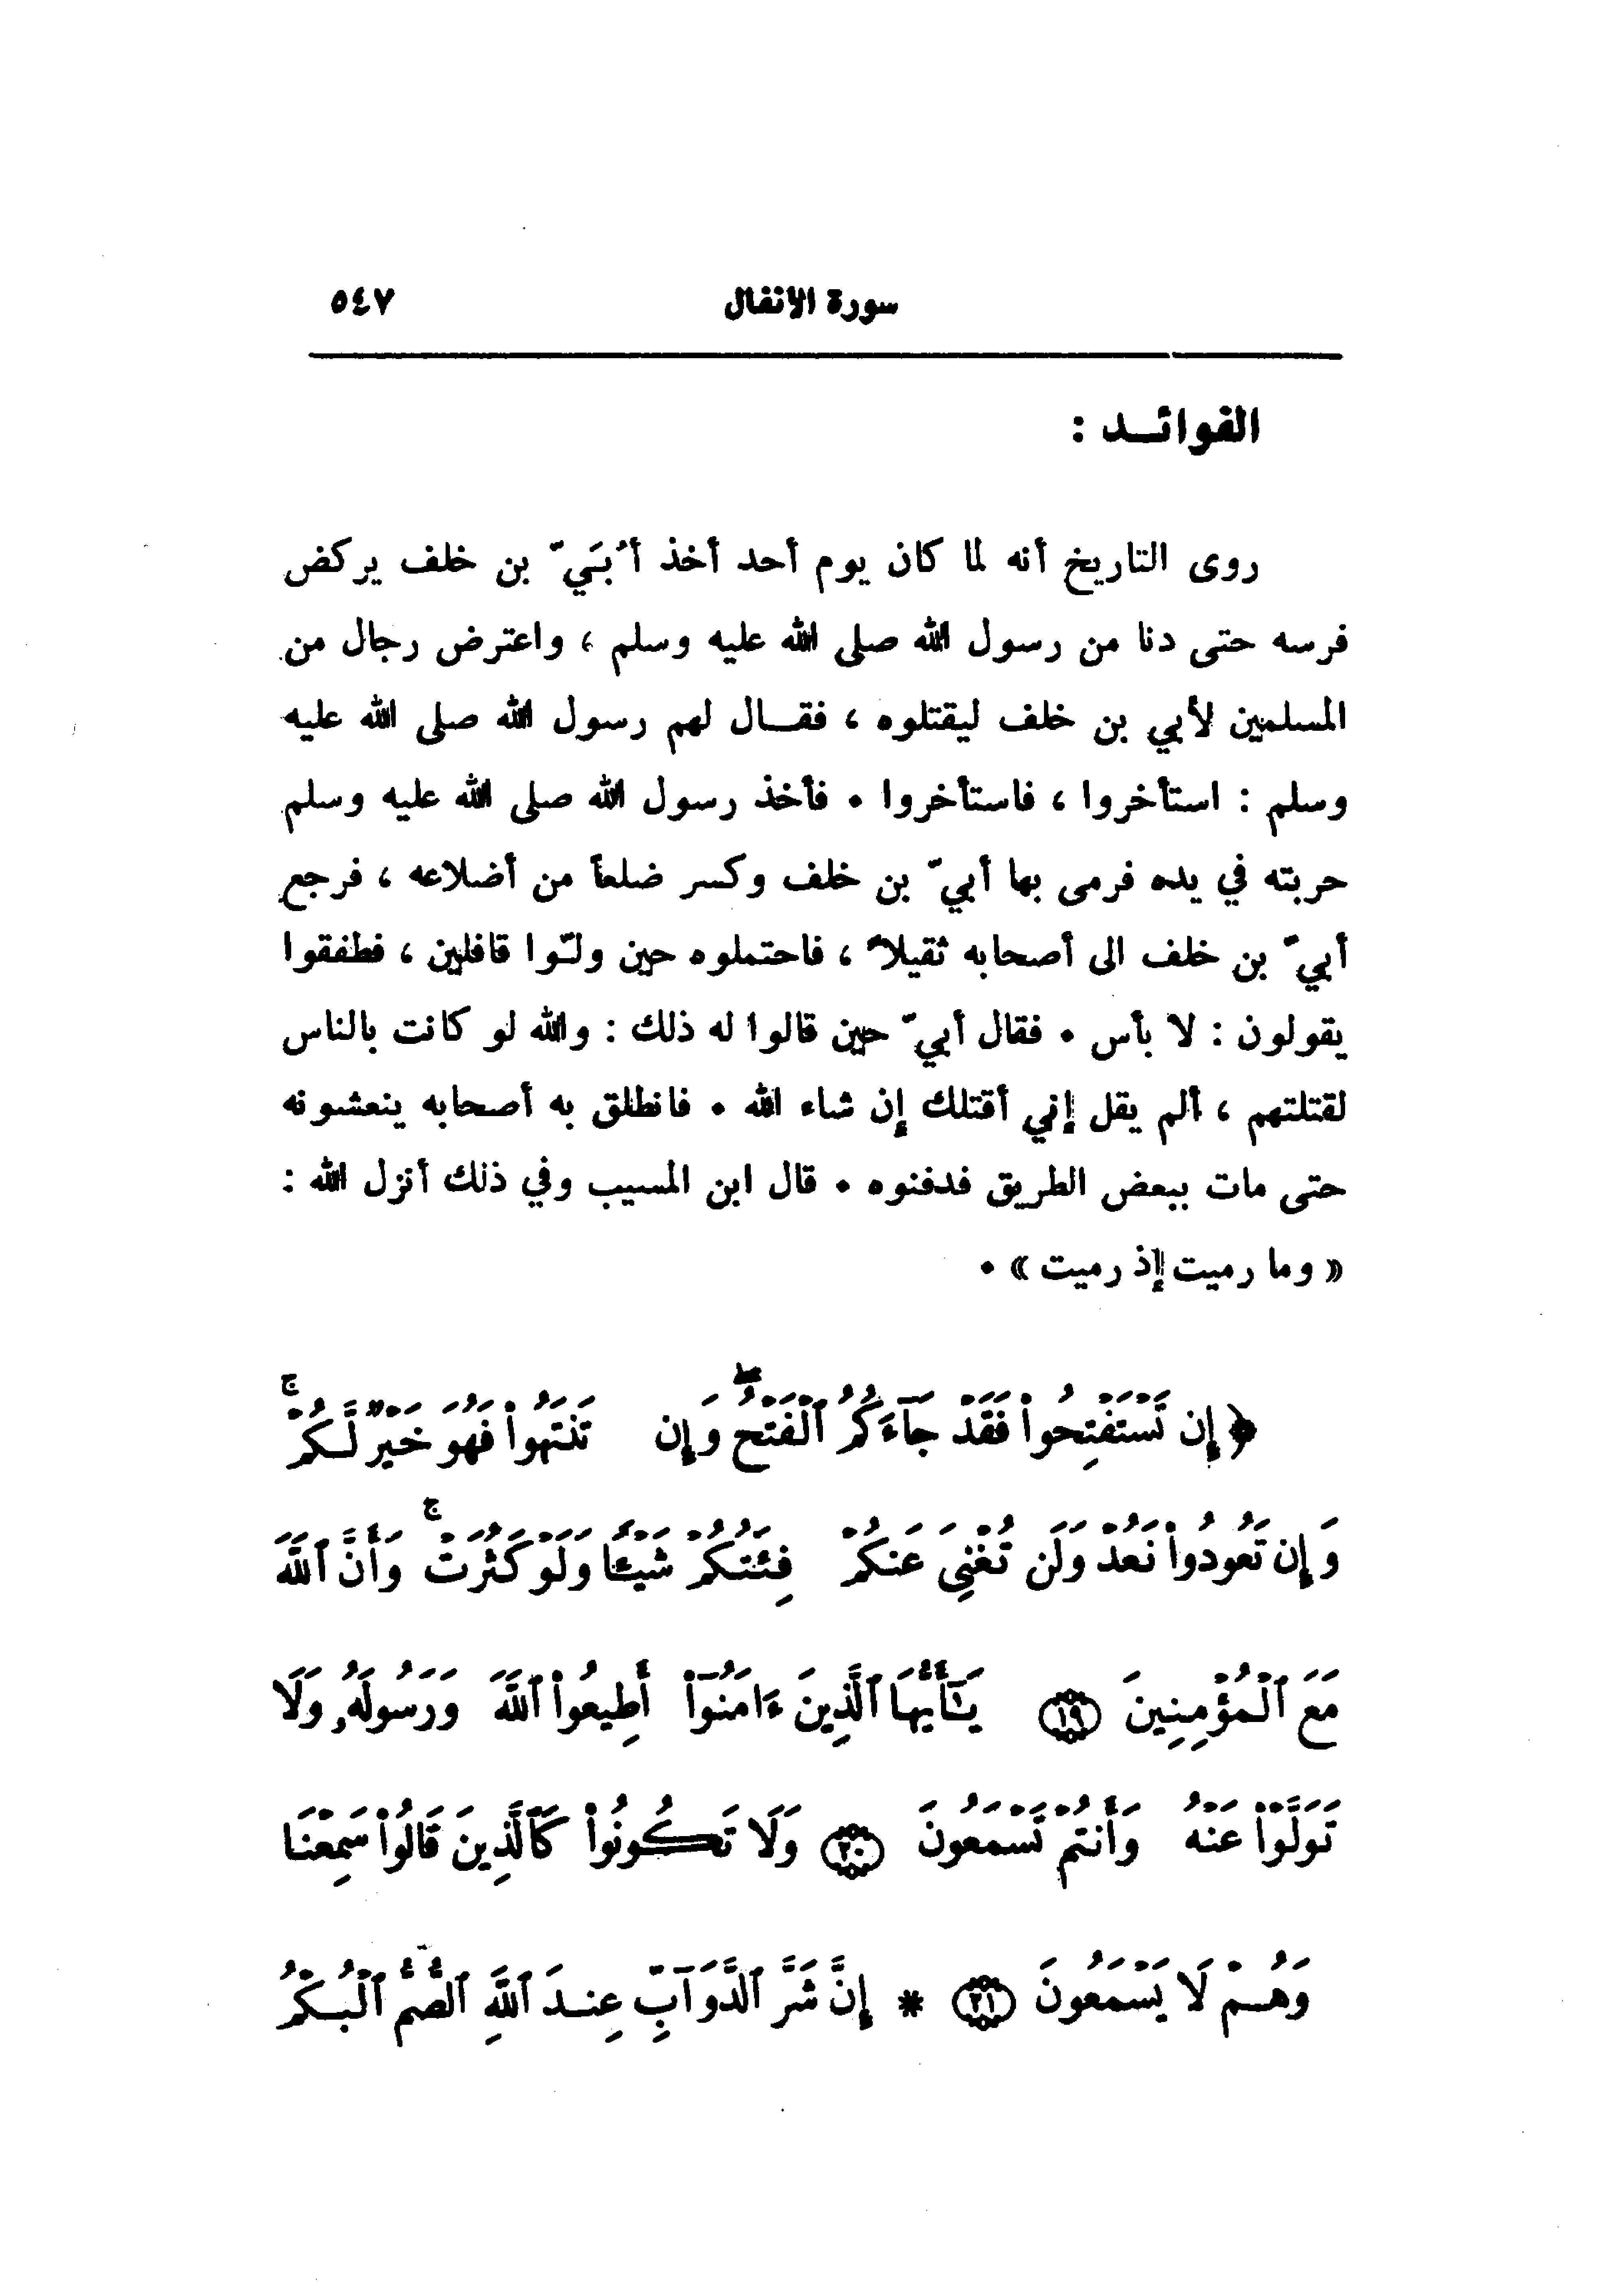 سورة الانفال ٥٤٧
الفوائـد :
روى التاريخ أنه لما كان يوم أحد أخذ أُبَيّ بن خلف يركض
فرسه حتى دنا من رسول الله صلى الله عليه وسلم ، واعترض رجال من
المسلمين لأبي بن خلف ليقتلوه ، فقـال لهم رسول الله صلى الله عليه
وسلم : استأخروا ، فاستأخروا . فأخذ رسول الله صلى الله عليه وسلم
حربته في يده فرمى بها أبيّ بن خلف وكسر ضلعاً من أضلاعه ، فرجع
أبيّ بن خلف الى أصحابه ثقيلاً ، فاحتملوه حين ولّوا قافلين ، فطفقوا
يقولون : لا بأس . فقال أبيّ حين قالوا له ذلك : والله لو كانت بالناس
لقتلتهم ، ألم يقل إني أقتلك إن شاء الله . فانطلق به أصحابه ينعشونه
حتى مات ببعض الطريق فدفنوه . قال ابن المسيب وفي ذلك أنزل الله :
« وما رميت إذ رميت » .
﴿ إِن تَسْتَفْتِحُواْ فَقَدْ جَآءَكُمُ ٱلْفَتْحُۖ وَإِن تَنتَهُواْ فَهُوَ خَيْرٌ لَّكُمْۚ
وَإِن تَعُودُواْ نَعُدْ وَلَن تُغْنِىَ عَنكُمْ فِئَتُكُمْ شَيْـًٔا وَلَوْ كَثُرَتْۚ وَأَنَّ ٱللَّهَ
مَعَ ٱلْمُؤْمِنِينَ ١٩ يَـٰٓأَيُّهَا ٱلَّذِينَ ءَامَنُوٓاْ أَطِيعُواْ ٱللَّهَ وَرَسُولَهُۥ وَلَا
تَوَلَّوْاْ عَنْهُ وَأَنتُمْ تَسْمَعُونَ ٢٠ وَلَا تَكُونُواْ كَٱلَّذِينَ قَالُواْ سَمِعْنَا
وَهُـمْ لَا يَسْمَعُونَ ٢١ * إِنَّ شَرَّ ٱلدَّوَآبِّ عِنـدَ ٱللَّهِ ٱلصُّمُّ ٱلْبُـكْمُ